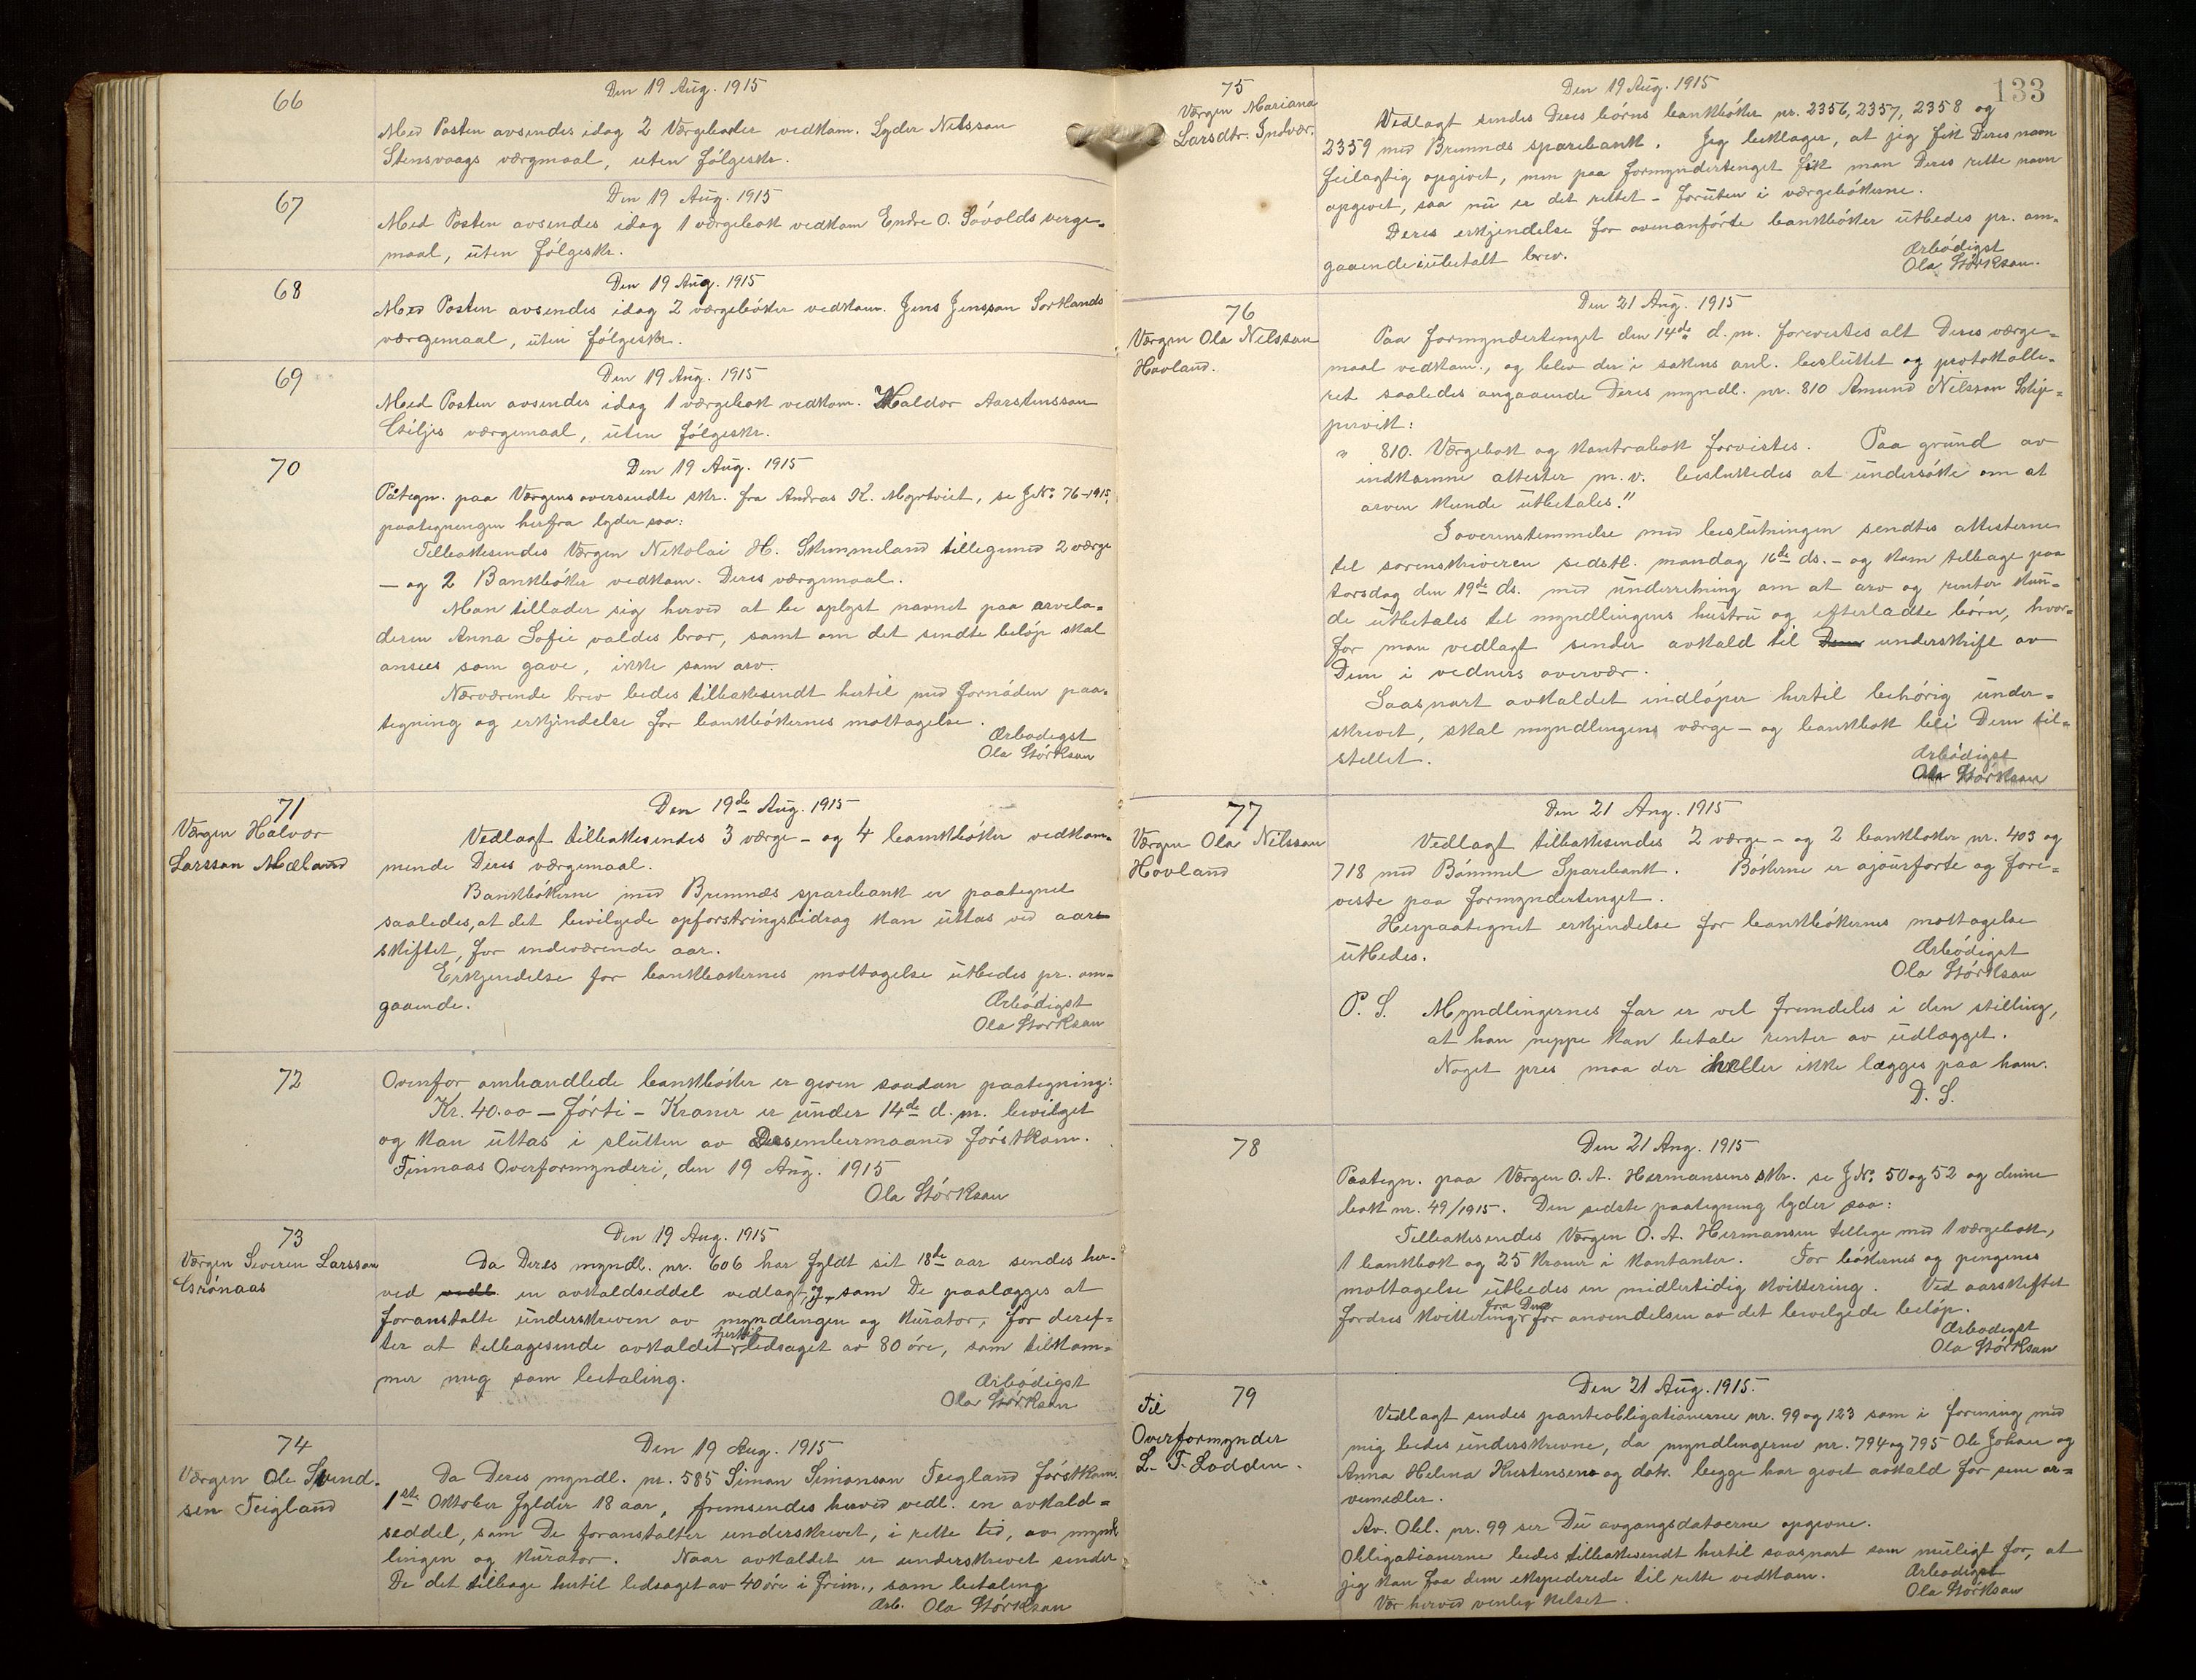 66
Den 19 Aug. 1915
Med Posten avsendes idag 2 Værgebøker vedkom. Lyder Nilsson
Stensvaags værgmaal, uten følgeskr.
67
Den 19 Aug. 1915
Med Posten avsendes idag 1 værgebok vedkom Endre O. Søvolds verge-
maal, uten følgeskr.
68
Den 19 Aug. 1915
Med Posten avsendes idag 2 værgebøker vedkom. Jens Jensson Sortlands
værgemaal, uten følgeskr.
69
Den 19 Aug. 1915
Med Posten avsendes idag 1 værgebok vedkom. Haldor Aarstensson
Eseljes værgemaal, uten følgeskr.
70
Den 19 Aug. 1915
Påtegn. paa Værgens oversendte skr. fra Andras K. Mortveit, se J.No. 76-1915,
paategningen herfra lyder saa:
Tilbakesendes Værgen Nikolai H. Skimmeland tillegemed 2 værge
— og 2 Bankbøker vedkom. Deres værgemaal.
Man tillader sig herved at be oplyst navnet paa arvela-
deren Anna Sofie valdes bror, samt om det sendte beløp skal
ansees som gave, ikke som arv.
Nærværende brev bedes tilbakesendt hertil med fornøden paa-
tegning og erkjendelse for bankbøkernes mottagelse.
Ærbødigst
Ola Størkson
71
Værgen Halvor
Larsson Mæland
Den 19de Aug. 1915
Vedlagt tilbakesendes 3 værge - og 4 bankbøker vedkom-
mende Deres værgemaal.
Bankbøkerne med Bremnæs sparebank er paategnet
saaledes, at det bevilgede opforstringsbidrag kan uttas ved aars
skiftet, for indeværende aar.
Erkjendelse for bankbøkernes mottagelse utbedes pr. om-
gaaende.
Ærbødigst
Ola Størkson
72
Ovenfor omhandlede bankbøker er given saadan paategning:
Kr. 40.00 — Førti - Kroner er under 14de d.m. bevilget
og kan uttas i slutten av Desembermaaned førstkom.
Finnaas Overformynderi, den 19 Aug. 1915
Ola Størkson
73
Værgen Severin Larsson
Grønaas
Den 19 Aug. 1915
Da Deres myndl. nr. 606 har fyldt sit 18de aar sendes her-
ved vedl. en avkaldseddel vedlagt, og som De paalægges at
foranstalte underskreven av myndlingen og kurator, for deref-
ter at tilbagesende avkaldet hertil ledsaget av 80 øre, som tilkom-
mer mig som betaling.
Ærbødigst
Ola Størkson
74
Værgen Ole Svend-
sen Teigland
Den 19 Aug. 1915
Da Deres myndl. nr. 585 Simon Simonson Teigland førstkom.
1ste Oktober fylder 18 aar, fremsendes herved vedl. en avkald-
seddel, som De foranstalter underskrevet, i rette tid, av mynd
lingen og kurator. Naar avkaldet er underskrevet sender
De det tilbage hertil ledsaget av 40 øre i frim., som betaling
Ærb. Ola Størkson
133
75
Værgen Mariana
Larsdtr. Indvær.
Den 19 Aug. 1915
Vedlagt sendes Deres børns bankbøker nr. 2356, 2357, 2358 og
2359 med Bremnæs sparebank. Jeg beklager, at jeg fik Deres navn
feilagtig opgivet, men paa formyndertinget fik man Deres rette navn
opgivet, saa nu er det rettet - foruten i værgebøkerne.
Deres erkjendelse for ovenanførte bankbøker utbedes pr. om-
gaaende i ubetalt brev.
Ærbødigst
Ola Størkson.
76
Værgen Ola Nilsson
Hovland.
Den 21 Aug. 1915
Paa formyndertinget den 14de d.m. forevistes alt Deres værge-
maal vedkom., og blev der i sakens anl. besluttet og protokolle-
ret saaledes angaaende Deres myndl. nr. 810 Amund Nilsson Skip-
pervik:
" 810. Værgebok og kontrabok forvistes. Paa grund av
indkomne attester m.v. besluttedes at undersøke om at
arven kunde utbetales."
I overensstemmelse med beslutningen sendtes attesterne
til sorenskriveren sidstl. mandag 16de ds. - og kom tilbage paa
torsdag den 19de ds. med underretning om at arv og renter kun-
de utbetales til myndlingens hustru og efterladte børn, hvor-
for man vedlagt sender avkald til Dem underskrift av
Dem i vidners overvær.
Saasnart avkaldet indløper hertil behørig under-
skrevet, skal myndlingens værge - og bankbok bli Dem til-
stillet.
Ærbødigst
Ola Størkson
77
Værgen Ola Nilsson
Hovland
Den 21 Aug. 1915
Vedlagt tilbakesendes 2 værge - og 2 bankbøker nr. 403 og
718 med Bømmel Sparebank. Bøkerne er ajourførte og fore-
viste paa formyndertinget.
Herpaategnet erkjendelse for bankbøkernes mottagelse
utbedes.
Ærbødigst
Ola Størkson
P. S. Myndlingernes far er vel fremdeles i den stilling,
at han neppe kan betale renter av udlægget.
Noget pres maa der heller ikke lægges paa ham.
D. S.
78
Den 21 Aug. 1915
Paategn. paa Værgen O. A. Hermansens skr. se J.No. 50 og 52 og denne
bok nr. 49/1915. Den sidste paategning lyder saa:
Tilbakesendes Værgen O. A. Hermansen tillige med 1 værgebok,
1 bankbok og 25 kroner i kontanter. For bøkernes og pengenes
mottagelse utbedes en midlertidig kvittering. Ved aarskiftet
fordres kvittering fra Dem for anvendelsen av det bevilgede beløp.
Ærbødigst
Ola Størkson
79
Til
Overformynder
L. T. Lodden.
Den 21 Aug. 1915.
Vedlagt sendes panteobligationerne nr. 99 og 123 som i forening med
mig bedes underskrevne, da myndlingerne nr. 794 og 795 Ole Johan og
Anna Helma Kristensens og dok. begge har givet avkald for sine ar-
vemidler.
Av. Obl. nr. 99 ser Du avgangsdatoerne opgivne.
Obligationerne bedes tilbakesendt hertil saasnart som muligt for, at
jeg kan faa dem ekspederede til rette vedkom.
Vær herved venlig hilset.
Ærbødigst
Ola Størkson